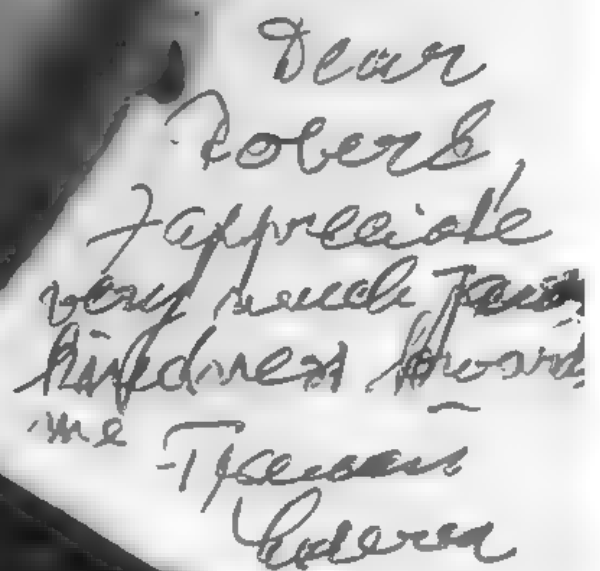 Dear
Robert,
I appreciate
very much your
kindness toward
me